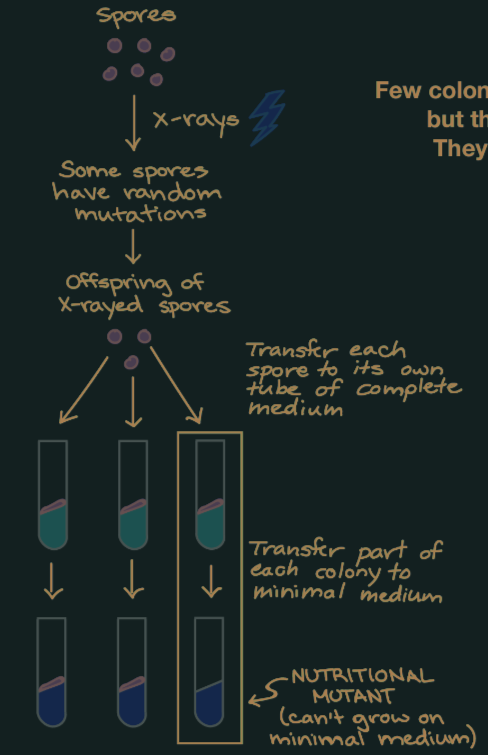 Spores
X-rays
Few colon
but th
They
Some spores
have random
mutations
Offspring of
X-rayed spores
Transfer each
spore to its own
tube of complete
medium
Transfer part of
each colony to
minimal medium
NUTRITIONAL
MUTANT
(can't grow on
minimal medium)